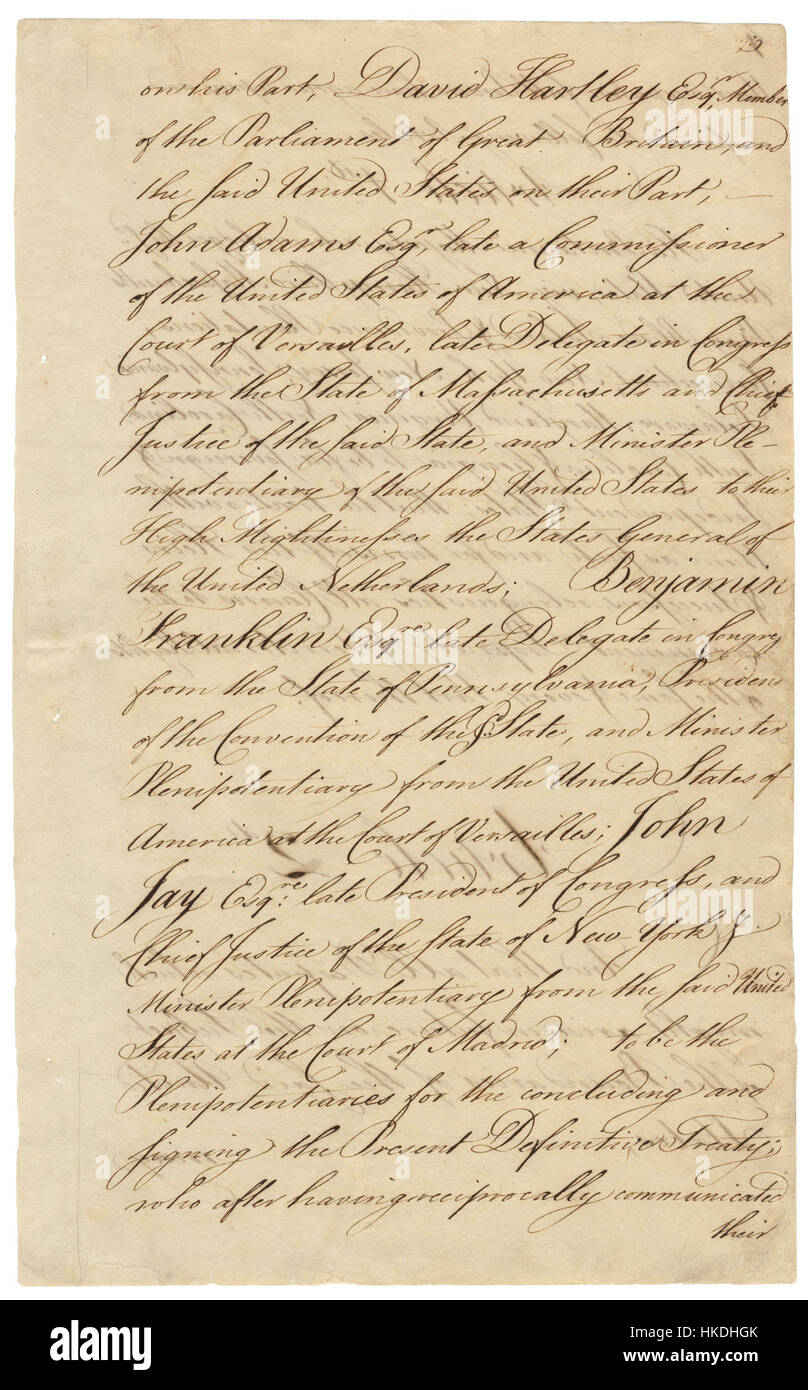 on his Part, David Hartley Esqr, Member
of the Parliament of Great Britain, and
the said United States on their Part, —
John Adams Esqr, late a Commissioner
of the United States of America at the
Court of Versailles, late Delegate in Congress
from the State of Massachusetts and Chief
Justice of the said State, and Minister Ple-
nipotentiary of the said United States to their
High Mightinesses the States General of
the United Netherlands; Benjamin
Franklin Esqre late Delegate in Congress
from the State of Pennsylvania, President
of the Convention of the sd State, and Minister
Plenipotentiary from the United States of
America at the Court of Versailles; John
Jay Esqre late President of Congress, and
Chief Justice of the State of New-York &
Minister Plenipotentiary from the said United
States at the Court of Madrid; to be the
Plenipotentiaries for the concluding and
signing the Present Definitive Treaty;
who after having reciprocally communicated
their
alamy
alamy stock photo
HKDHGK
www.alamy.com